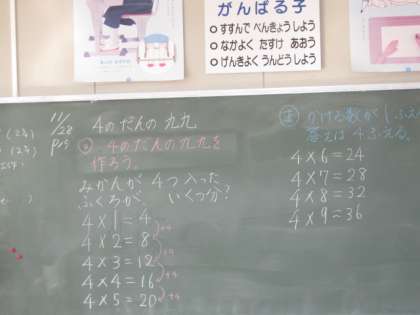 がんばる子
○すすんで べんきょう しよう
○なかよく たすけ あおう
○げんきよく うんどう しよう
11/28
4のだんの 九九
4のだんの九九を
作ろう。
みかんが 4つ入った
ふくろが、 いくつ分?
4×1=4
4×2=8
4×3=12
4×4=16
4×5=20
+4
+4
+4
+4
かける数が1ふえ
答えは4ふえる。
4×6=24
4×7=28
4×8=32
4×9=36